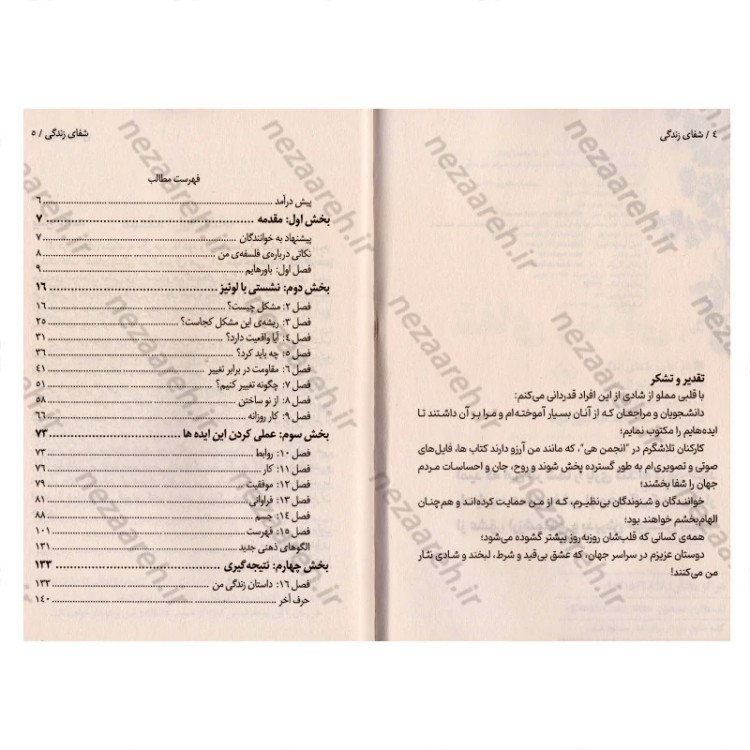 ٤ / شفای زندگی
تقدیر و تشکر
با قلبی مملو از شادی از این افراد قدردانی می‌کنم:
دانشجویان و مراجعان که از آنان بسیار آموخته‌ام و مرا بر آن داشتند تا
ایده‌هایم را مکتوب نمایم؛
کارکنان تلاشگرم در "انجمن هی"، که مانند من آرزو دارند کتاب ها، فایل‌های
صوتی و تصویری‌ام به طور گسترده پخش شوند و روح، جان و احساسات مردم
جهان را شفا بخشند؛
خوانندگان و شنوندگان بی‌نظیرم، که از من حمایت کرده‌اند و هم‌چنان
الهام‌بخشم خواهند بود؛
همه‌ی کسانی که قلب‌شان روزبه‌روز بیشتر گشوده می‌شود؛
دوستان عزیزم در سراسر جهان، که عشق بی‌قید و شرط، لبخند و شادی نثار
من می‌کنند!
شفای زندگی / ٥
فهرست مطالب
پیش درآمد ... ۶
بخش اول: مقدمه ... ۷
پیشنهاد به خوانندگان ... ۷
نکاتی درباره‌ی فلسفه‌ی من ... ۸
فصل اول: باورهایم ... ۹
بخش دوم: نشستی با لوئیز ... ۱۶
فصل ۲: مشکل چیست؟ ... ۱۶
فصل ۳: ریشه‌ی این مشکل کجاست؟ ... ۲۵
فصل ۴: آیا واقعیت دارد؟ ... ۳۱
فصل ۵: چه باید کرد؟ ... ۳۶
فصل ۶: مقاومت در برابر تغییر ... ۴۱
فصل ۷: چگونه تغییر کنیم؟ ... ۵۱
فصل ۸: از نو ساختن ... ۵۸
فصل ۹: کار روزانه ... ۶۶
بخش سوم: عملی کردن این ایده ها ... ۷۳
فصل ۱۰: روابط ... ۷۳
فصل ۱۱: کار ... ۷۶
فصل ۱۲: موفقیت ... ۷۹
فصل ۱۳: فراوانی ... ۸۱
فصل ۱۴: جسم ... ۸۸
فصل ۱۵: فهرست ... ۱۰۱
الگوهای ذهنی جدید ... ۱۳۱
بخش چهارم: نتیجه‌گیری ... ۱۳۳
فصل ۱۶: داستان زندگی من ... ۱۳۳
حرف آخر ... ۱۴۰
nezaareh.ir
nezaareh.ir
nezaareh.ir
nezaareh.ir
nezaareh.ir
nezaareh.ir